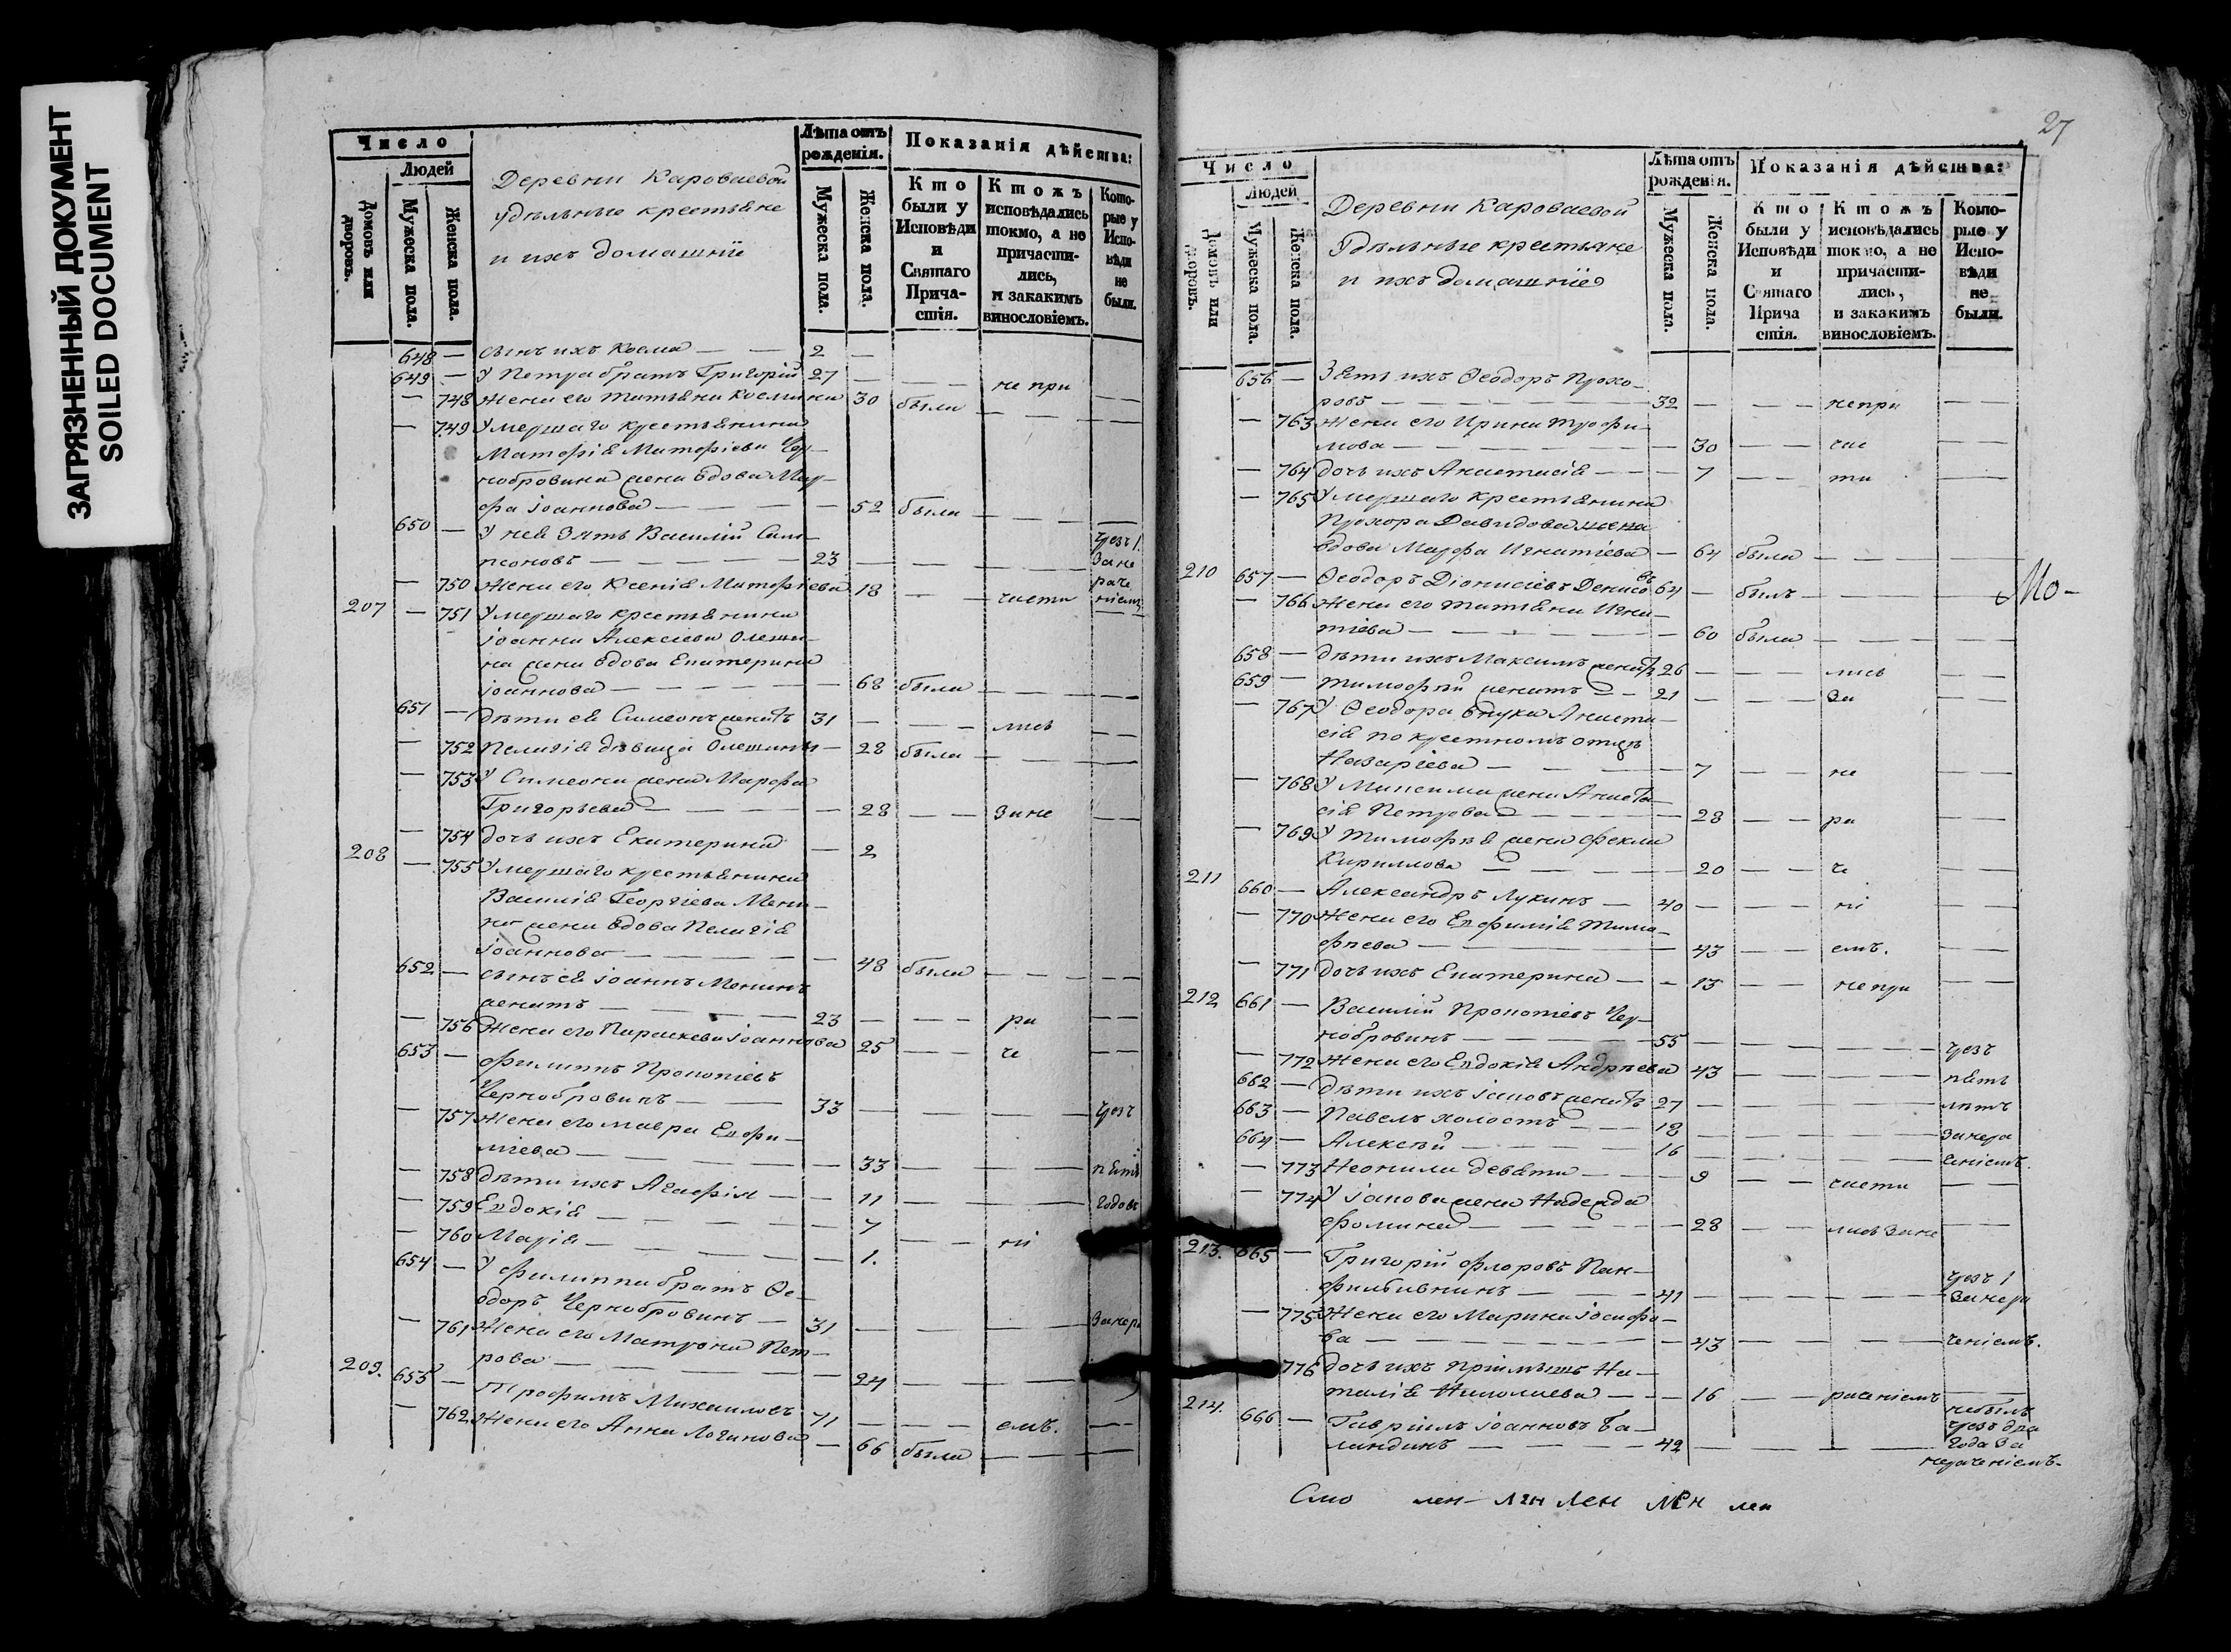 ЗАГРЯЗНЕННЫЙ ДОКУМЕНТ
SOILED DOCUMENT
Число
Людей
Домовъ или дворовъ.
Мужеска пола.
Женска пола.
Деревни Кароваевой
удѣльные крестьяне
и ихъ домашнiе
Лѣта отъ рожденiя.
Мужеска пола.
Женска пола.
Показанiя дѣйства:
Кто были у Исповѣди и Святаго Прича-стiя.
Ктожъ исповѣдались токмо, а не причасти-лись, и закакимъ винословiемъ.
Кото-рые у Испо-вѣди не были.
648 — сынъ ихъ Косма — — 2 —
649 — У Петра братъ Григорiй 27 — — — не при
— 748 Жена его Татьяна Космина 30 была — — — —
— 749 Умершаго крестьянина
Матфiя Матфiева Чер-
нобровина жена вдова Мар-
фа Iоаннова — — — — 52 была — — — —
650 — У нея зять Василiй Сам-
псоновъ — — — — 23 — — — — чрез 1. За не
— 750 Жена его Ксенiя Матфiева 18 — — части раче нiемъ
207 — 751 Умершаго крестьянина
Iоанна Алексiева Олеши-
на жена вдова Екатерина
Iоаннова — — — — — 68 была — — — —
651 — Дѣти ея Симеонъ женатъ 31 — — — лись — —
— 752 Пелагiя дѣвица Олешины — 28 была — — —
— 753 У Симеона жена Марфа
Григорьева — — — — 28 — — За не — —
— 754 дочь ихъ Екатерина — 2
208 — 755 Умершаго крестьянина
Василiя Георгiева Мени-
на жена вдова Пелагiя
Iоаннова — — — — 48 была — — — —
652 — сынъ ея Iоаннъ Менинъ
женатъ — — — — 23 — — — ра — —
— 756 Жена его Параскева Iоаннова 25 — — че — —
653 — Филиппъ Прокопiевъ
Чернобровинъ — — 33 — — — — чрезъ
— 757 Жена его Мавра Евфи-
мiева — — — — — 33 — — — пять
— 758 дѣти ихъ Агафiя — — 11 — — — годовъ
— 759 Евдокiя — — — — 7
— 760 Марiя — — — — 1. — — нi
654 — У Филиппа братъ Ѳе-
одоръ Чернобровинъ — 31 — — — — За нера
— 761 Жена его Матрона Пет-
рова — — — — — 24 — — — —
209. 655 — Трофимъ Михаиловъ 71 — — — емъ. — —
— 762 Жена его Анна Логинова — 66 была — — — —
27
Число
Людей
Домовъ или дворовъ.
Мужеска пола.
Женска пола.
Деревни Кароваевой
Удѣльные крестьяне
и ихъ домашнiе
Лѣта отъ рожденiя.
Мужеска пола.
Женска пола.
Показанiя дѣйства:
Кто были у Исповѣди и Святаго Прича стiя.
Ктожъ исповѣдались токмо, а не причасти-лись, и закакимъ винословiемъ.
Кото-рые у Испо-вѣди не были.
656 — Зять ихъ Ѳеодоръ Прохо-
ровъ — — — — 32 — — — непри — —
— 763 Жена его Ирина Трофи-
мова — — — — — 30 — — час — —
— 764 дочь ихъ Анастасiя — — — 7 — — ти — —
— 765 Умершаго крестьянина
Прохора Давидова жена
вдова Марфа Игнатiева — 64 была — — — —
210 657 — Ѳеодоръ Дiонисiевъ Денисовъ 64 — былъ — — — — Мо-
— 766 Жена его Татьяна Игна-
тiева — — — — — 60 была — — — —
658 — дѣти ихъ Максимъ женатъ 26 — — — лись — —
659 — Тимофѣй женатъ — — 21 — — — За — —
— 767 У Ѳеодора внука Анаста-
сiя по крестномъ отцѣ
Назарiева — — — — 7 — — не — —
— 768 У Максима жена Анаста-
сiя Петрова — — — — 28 — — ра — —
— 769 У Тимофѣя жена Фекла
Кириллова — — — — 20 — — че — —
211 660 — Александръ Лукинъ — 40 — — — нi — —
— 770 Жена его Евфимiя Тимо-
фѣева — — — — — 43 — — емъ. — —
— 771 дочь ихъ Екатерина — — 13 — — не при — —
212 661 — Василiй Прокопiевъ Чер-
нобровинъ — — — — 55 — — — — чрезъ
— 772 Жена его Евдокiя Андрѣева 43 — — — пять
662 — дѣти ихъ Iаковъ женатъ 27 — — — — лѣтъ
663 — Павелъ холостъ — — 18 — — — — За нера
664 — Алексѣй — — — — 16 — — — — ченiемъ.
— 773 Неонила девята — — 9 — — части — —
— 774 У Iакова жена Надежда
Фомина — — — — — 28 — — лись За не — —
213. 665 — Григорiй Флоровъ Пан-
фильшинъ — — — 41 — — — — чрез 1 За нера
— 775 Жена его Марина Iосифо-
ва — — — — — 43 — — — ченiемъ.
776 дочь ихъ прiимышъ На-
талiя Николаева — — 16 — — раченiемъ — —
214. 666 — Гаврiилъ Iоанновъ Ба-
ландинъ — — — 42 — — — — небылъ чрезъ два года За нераченiемъ.
Смо лен- лен лен лен лен